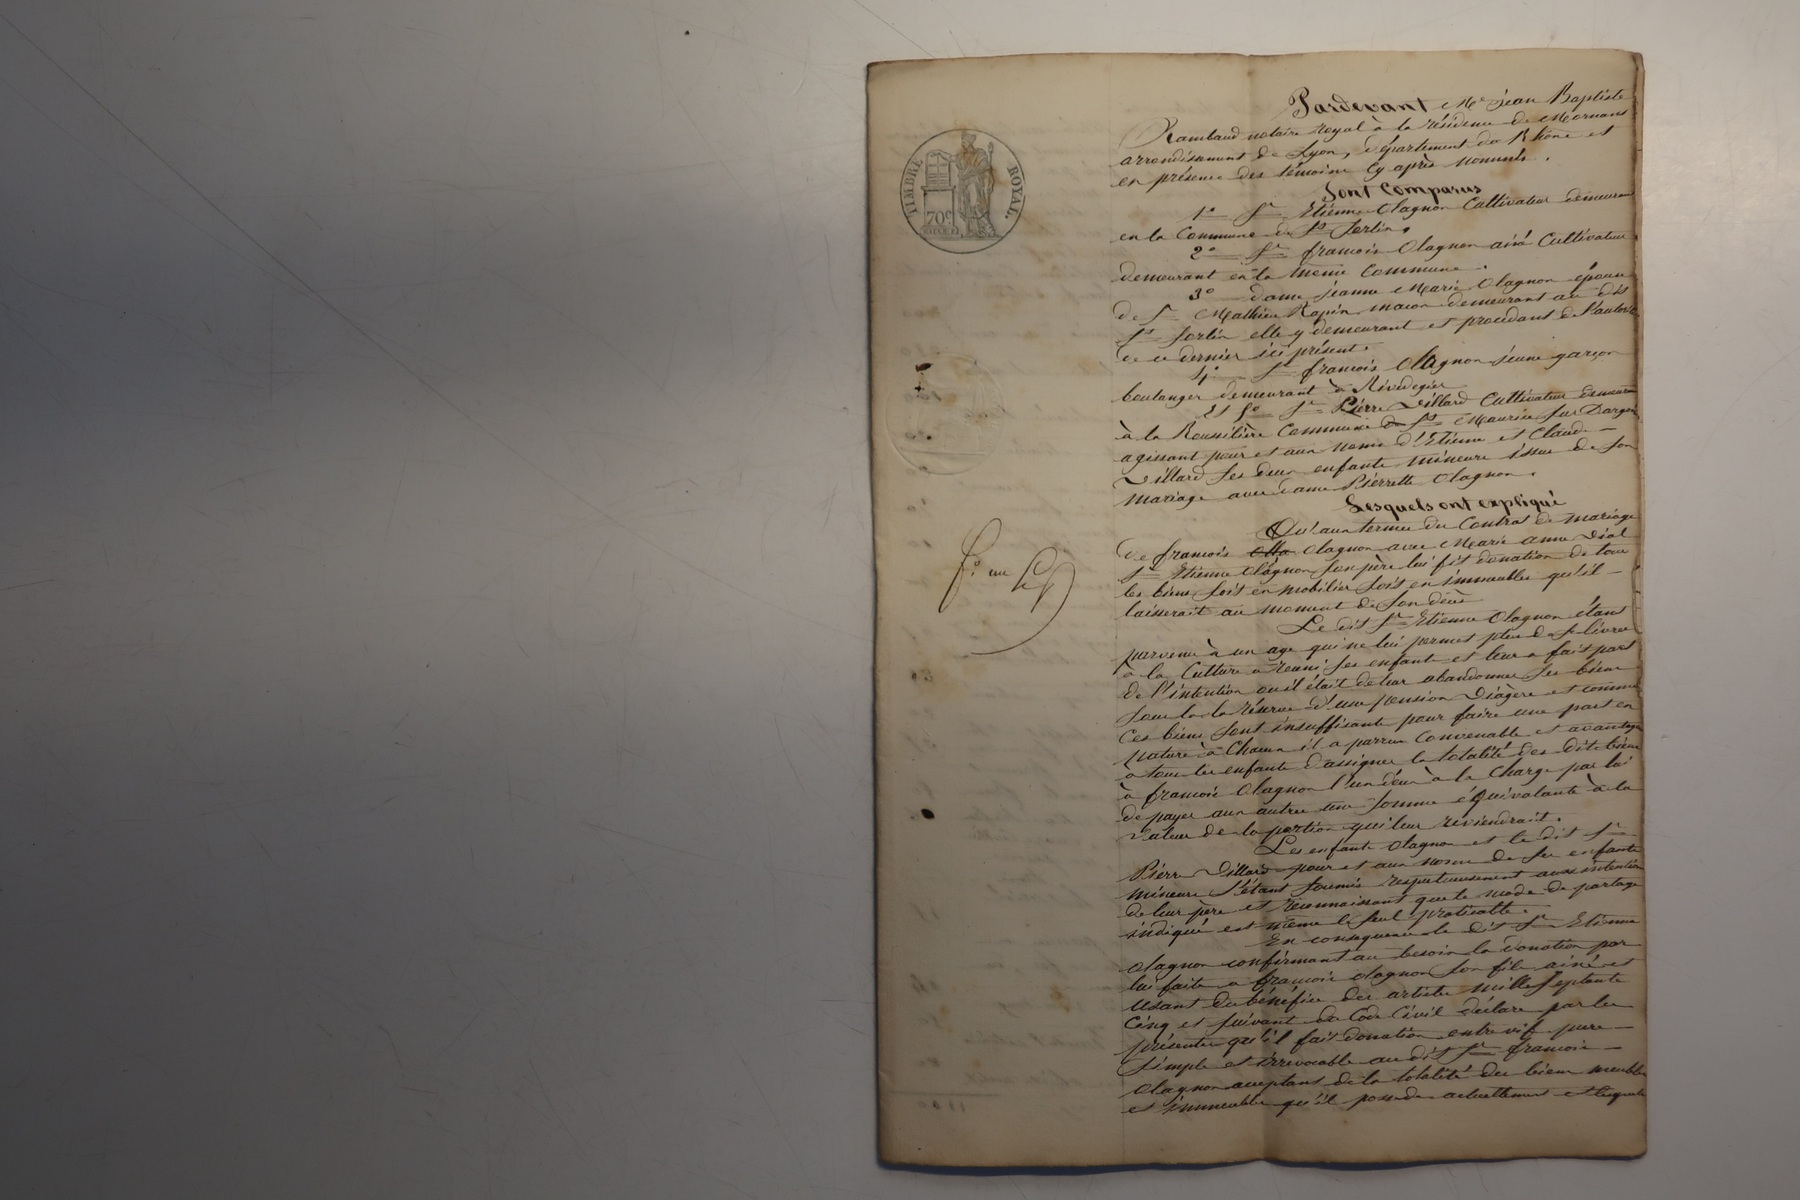 TIMBRE ROYAL.
70c
Pardevant Me jean Baptiste
Rambaud notaire royal à la résidence de Mornant
arrondissement de Lyon, département du Rhône et
en présence des témoins cy après nommés.
Sont Comparus
1° Sr Etienne Olagnon Cultivateur demeurant
en la Commune de St Sorlin.
2° Sr françois Olagnon ainé Cultivateur
demeurant en la même Commune.
3° dame jeanne Marie Olagnon épouse
de Sr Mathieu Rapin macon demeurant au dit
St Sorlin elle y demeurant et procédant de l'autorité
de ce dernier ici présent.
4° Sr françois Olagnon jeune garçon
boulanger demeurant à Rivedegier
Et 5° Sr Pierre Villard Cultivateur demeurant
à la Roussilière Commune de St Maurice sur Dargoire
agissant pour et aux noms d'Etienne et Claude
Villard ses deux enfants mineurs issus de son
mariage avec dame Pierrette Olagnon.
Lesquels ont expliqué
Qu'aux termes du Contrat de mariage
de françois Olagnon avec Marie anne Vial
Sr Etienne Olagnon son père lui fit donation de tous
les biens soit en mobilier soit en immeubles qu'il
laisserait au moment de son décès
Le dit Sr Etienne Olagnon étant
parvenu à un age qui ne lui permet plus de se livrer
à la Culture a réuni ses enfants et leur a fait part
de l'intention où il était de leur abandonner ses biens
sous la réserve d'une pension viagère et comme
ces biens sont insuffisants pour faire une part en
nature à Chacun il a parru Convenable et avantageux
à tous les enfants d'assigner la totalité des dits biens
à françois Olagnon l'un d'eux à la charge par lui
de payer aux autres une somme équivalante à la
valeur de la portion qui leur reviendrait.
Les enfants Olagnon et le dit Sr
Pierre Villard pour et aux noms de ses enfants
mineurs s'étant soumis respectueusement aux intentions
de leur père et reconnaissant que le mode de partage
indiqué est même le seul praticable.
En consequence le dit Sr Etienne
Olagnon confirmant au besoin la donation par
lui faite à françois Olagnon son fils ainé et
usant du bénéfice des articles mille septante
cinq et suivant du Code Civil déclare par les
présentes qu'il fait donation entre vifs pure
simple et irrévocable au dit Sr françois
Olagnon acceptant de la totalité des biens meubles
et immeubles qu'il possède actuellement et lesquels